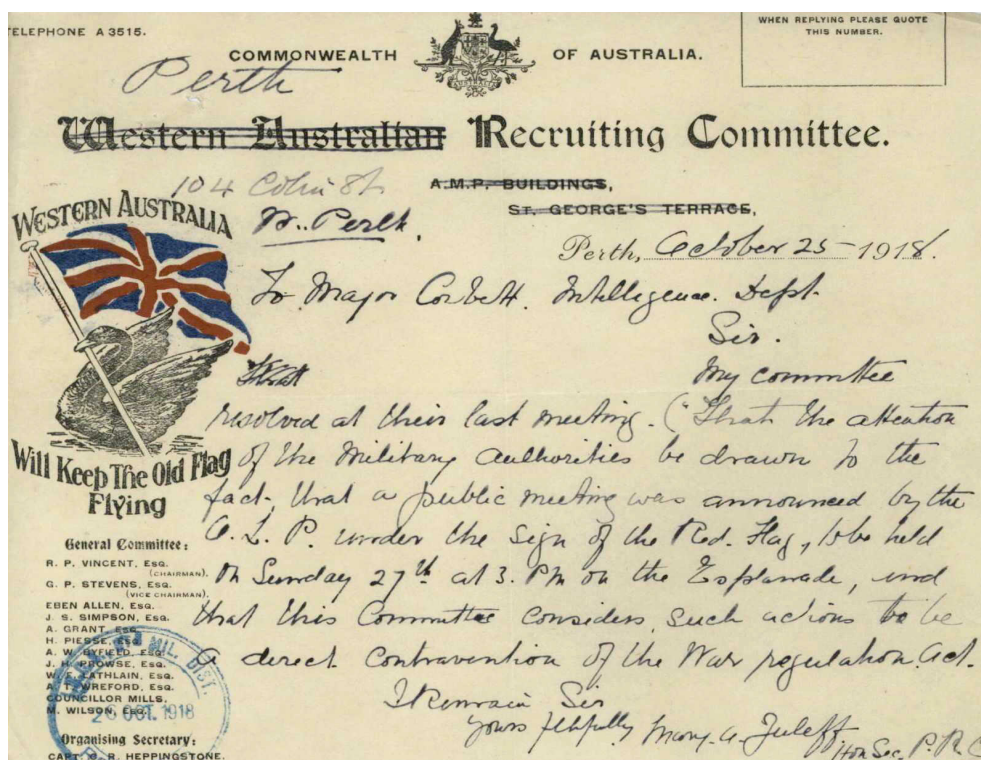 TELEPHONE A 3515.
WHEN REPLYING PLEASE QUOTE
THIS NUMBER.
COMMONWEALTH OF AUSTRALIA.
Perth
Western Australian Recruiting Committee.
104 Colin St
W. Perth.
A.M.P. BUILDINGS,
ST. GEORGE'S TERRACE,
Perth, October 25 - 1918.
WESTERN AUSTRALIA
Will Keep The Old Flag
Flying
To Major Corbett. Intelligence. Dept.
Sir.
My committee
resolved at their last meeting. ("That the attention
of the Military Authorities be drawn to the
fact, that a public meeting was announced by the
A. L. P. under the sign of the Red. Flag, to be held
on Sunday 27th at 3. PM on the Esplanade, and
that this Committee considers such actions to be
a direct contravention of the War regulation. Act.
I Remain Sir
Yours fthfully Mary. A. Juleff
Hon Sec. P. R. C
General Committee:
R. P. VINCENT, ESQ.
(CHAIRMAN).
G. P. STEVENS, ESQ.
(VICE CHAIRMAN).
EBEN ALLEN, ESQ.
J. S. SIMPSON, ESQ.
A. GRANT, ESQ.
H. PIESSE, ESQ.
A. W. BYFIELD, ESQ.
J. H. PROWSE, ESQ.
W. F. LATHLAIN, ESQ.
A. T. WREFORD, ESQ.
COUNCILLOR MILLS.
M. WILSON, ESQ.
MIL. DIST.
26 OCT. 1918
Organising Secretary:
CAPT. O. R. HEPPINGSTONE.